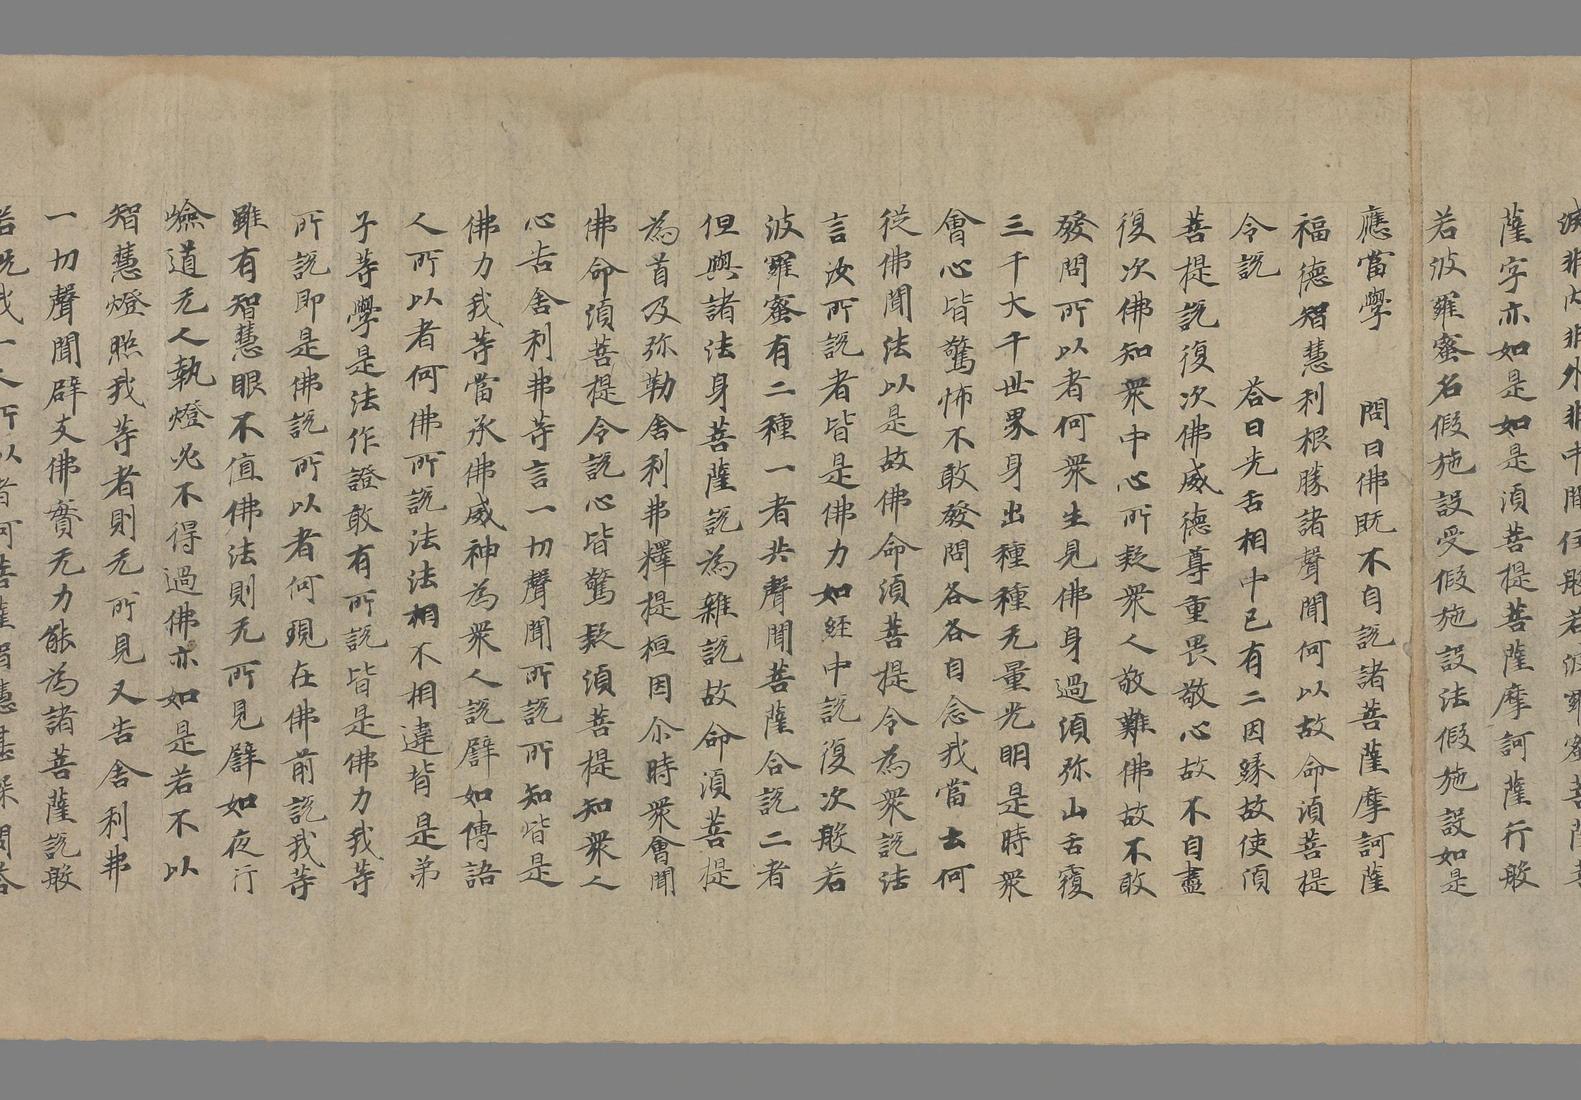 滅非內非外非中間住般若波羅蜜菩薩菩
薩字亦如是如是須菩提菩薩摩訶薩行般
若波羅蜜名假施設受假施設法假施設如是
應當學　問曰佛既不自說諸菩薩摩訶薩
福德智慧利根勝諸聲聞何以故命須菩提
令說　答曰先舌相中已有二因緣故使須
菩提說復次佛威德尊重畏敬心故不自盡
復次佛知衆中心所疑衆人敬難佛故不敢
發問所以者何衆生見佛身過須弥山舌覆
三千大千世界身出種種无量光明是時衆
會心皆驚怖不敢發問各各自念我當去何
從佛聞法以是故佛命須菩提令為衆說法
言汝所說者皆是佛力如經中說復次般若
波羅蜜有二種一者共聲聞菩薩合說二者
但與諸法身菩薩說為雜說故命須菩提
為首及弥勒舍利弗釋提桓因尒時衆會聞
佛命須菩提令說心皆驚疑須菩提知衆人
心告舍利弗等言一切聲聞所說所知皆是
佛力我等當承佛威神為衆人說譬如傳語
人所以者何佛所說法法相不相違皆是弟
子等學是法作證敢有所說皆是佛力我等
所說即是佛說所以者何現在佛前說我等
雖有智慧眼不值佛法則无所見譬如夜行
嶮道无人執燈必不得過佛亦如是若不以
智慧燈照我等者則无所見又告舍利弗
一切聲聞辟支佛實无力能為諸菩薩說般
若況我一人所以者何菩薩智慧甚深問答